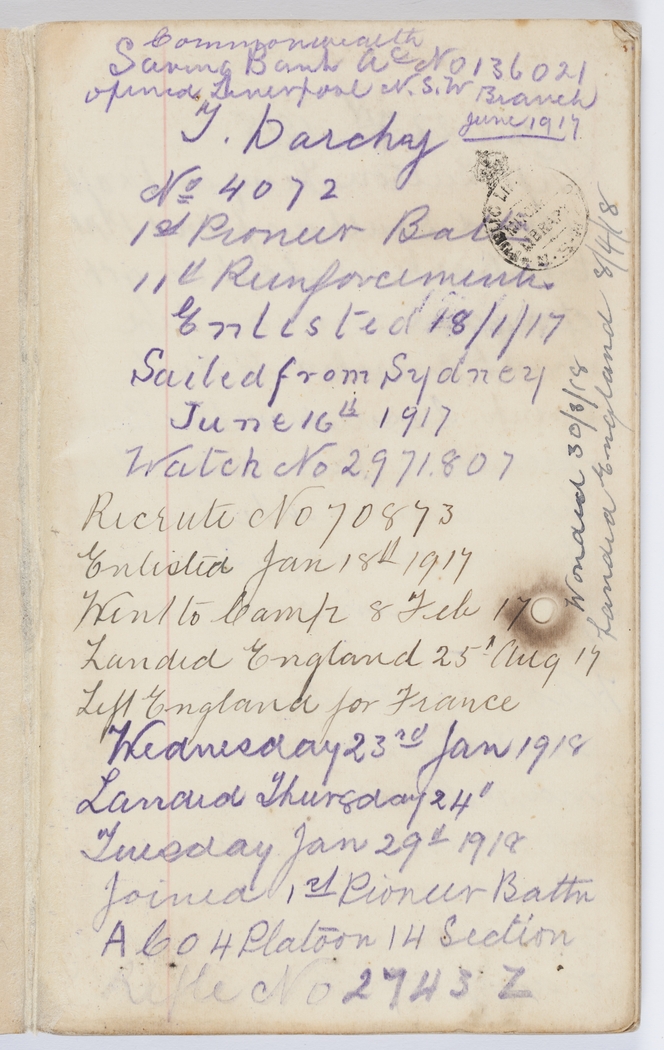 Commonwealth
Saving Bank A/c No 136021
opined Linerpool N.S.W Branch
June 1917
T. Darchy
No 4072
1st Pioneer Batt
11th Reinforcements
Enlisted 18/1/17
Sailed from Sydney
June 16th 1917
Watch No 2971807
Recrute No 70873
Enlisted Jan 18th 1917
Went to Camp 8 Feb 17
Landed England 25" Aug 17
Left England for France
Wednesday 23rd Jan 1918
Landed Thursday 24"
Tuesday Jan 29th 1918
Joined 1st Pioneer Battn
A Co 4 Platoon 14 Section
Rifle No 2743 Z
Wonded 30/3/18
Landed England 8/4/18